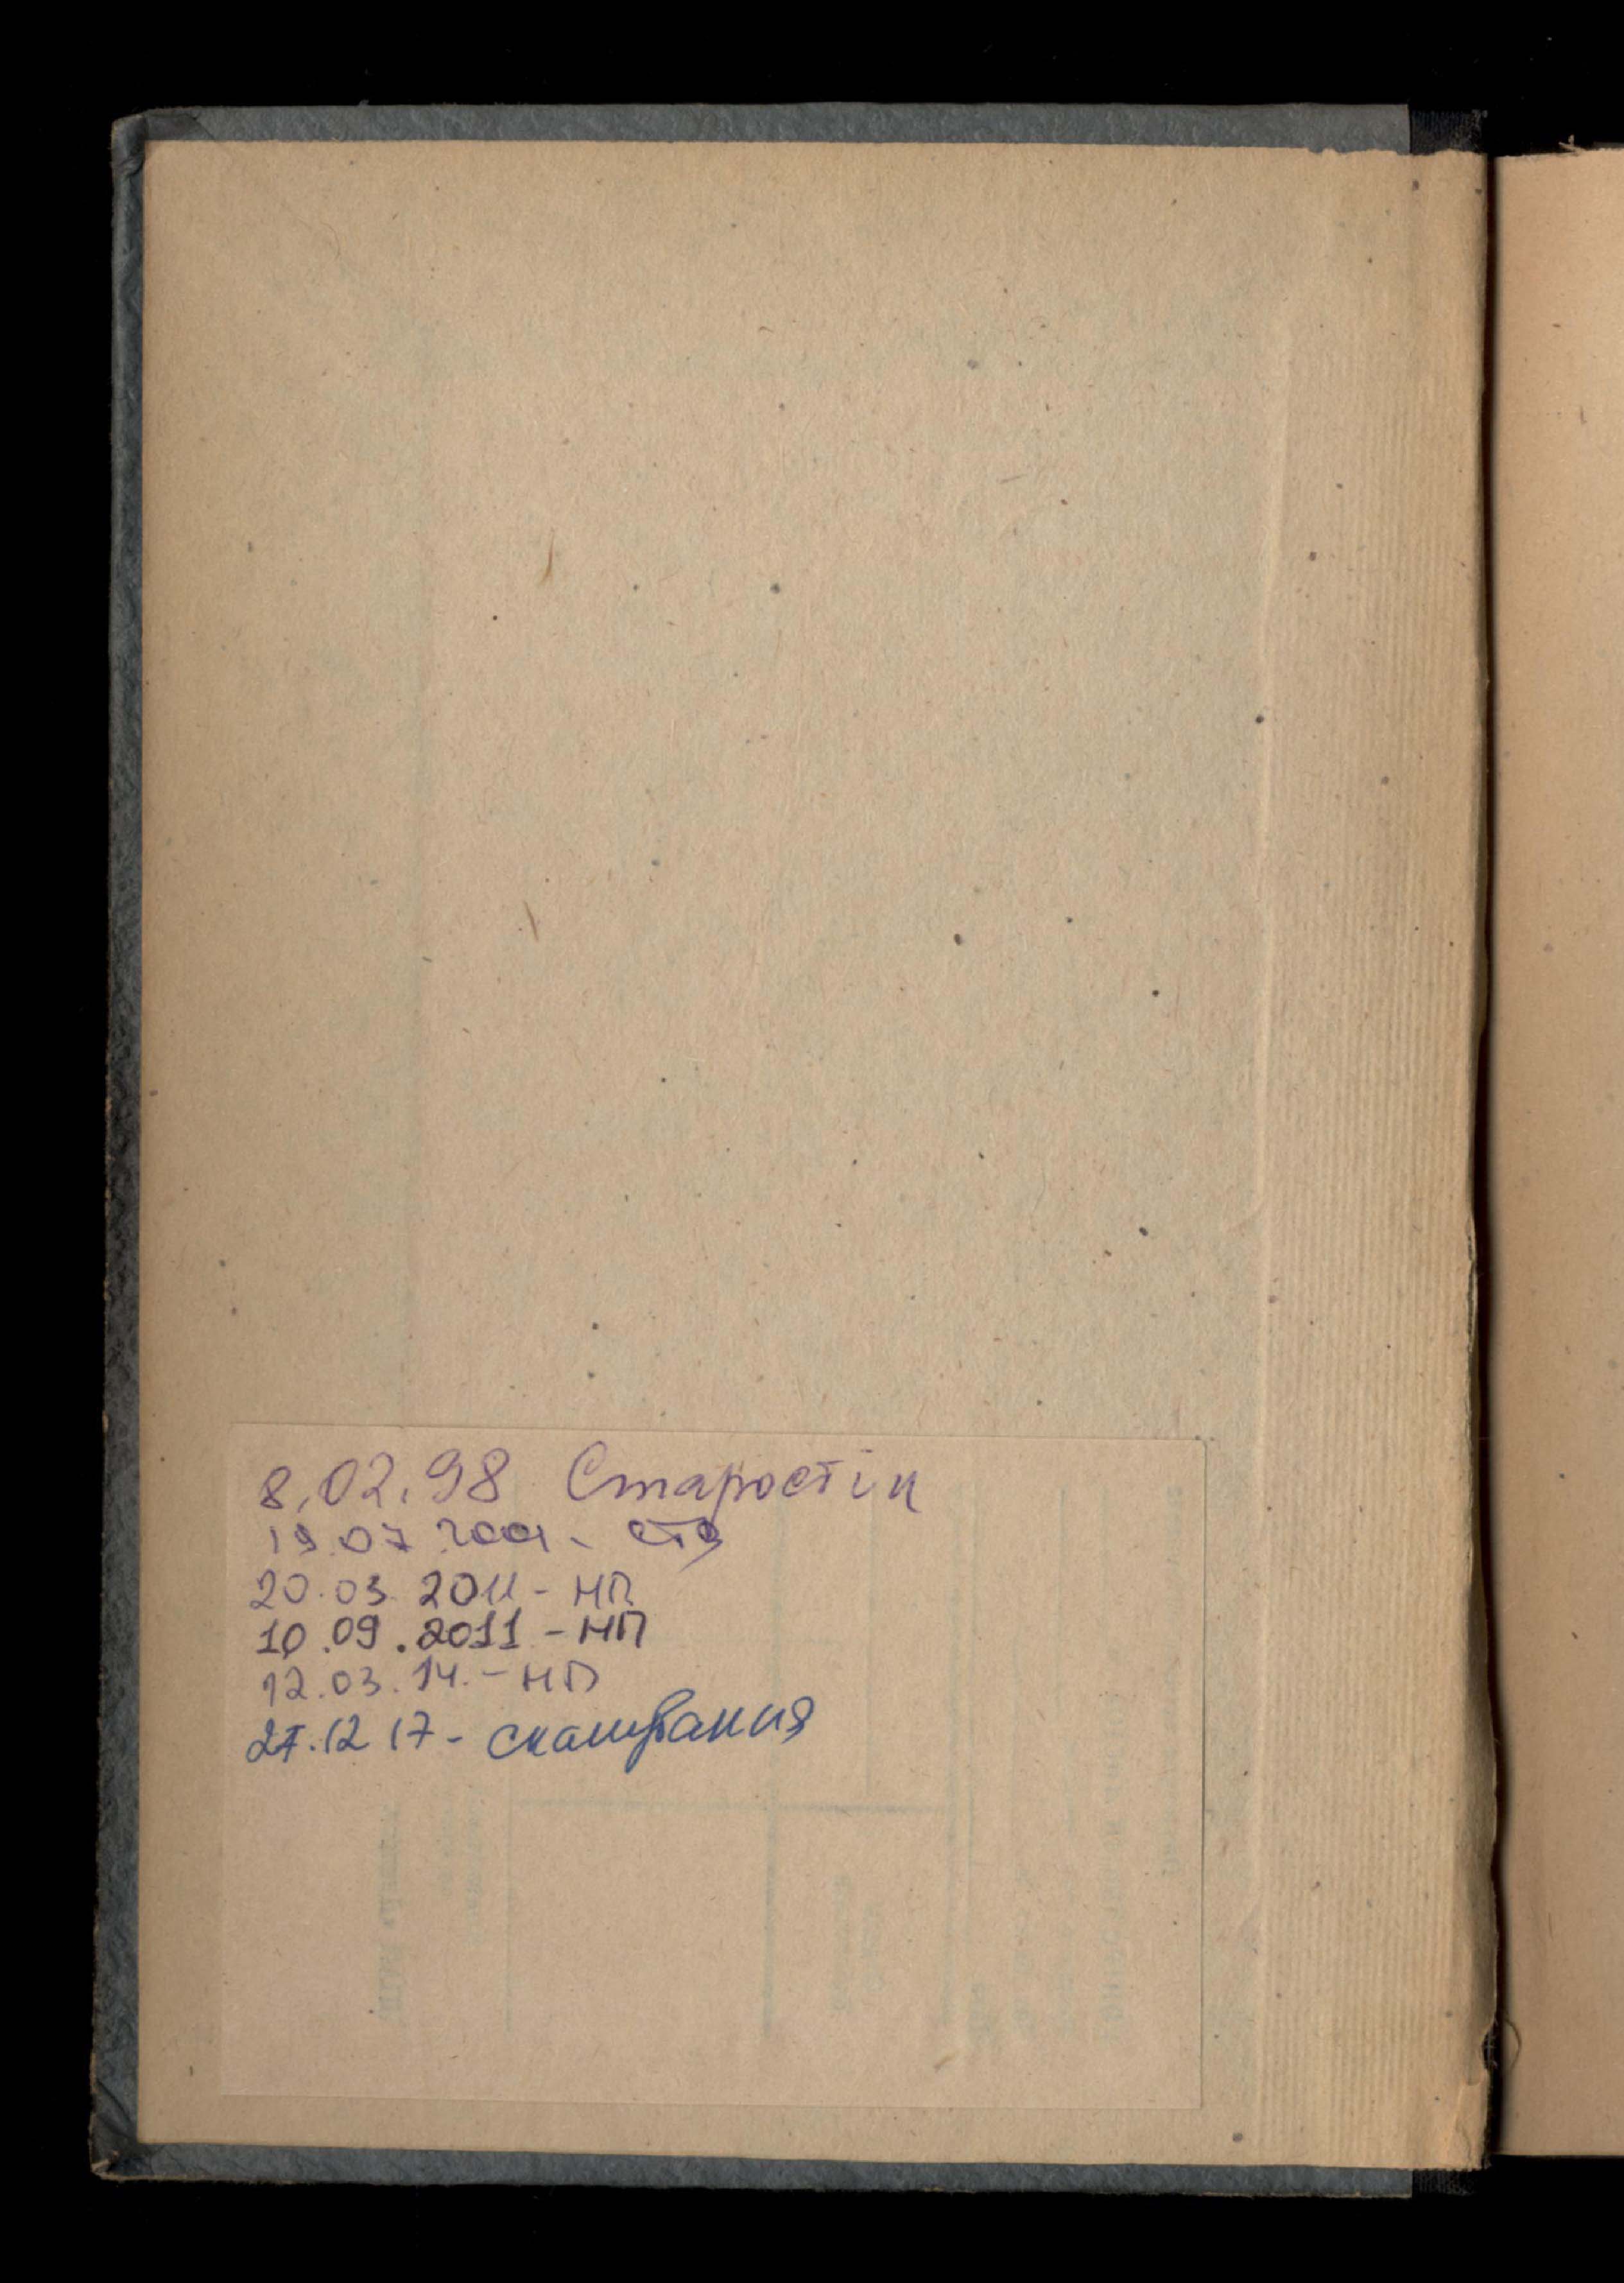 8.02.98 Старостін
19.07 2001 - 
20.03. 2011 - НП
10.09.2011 - НП
12.03.14. - НП
27.12 17 - сканування